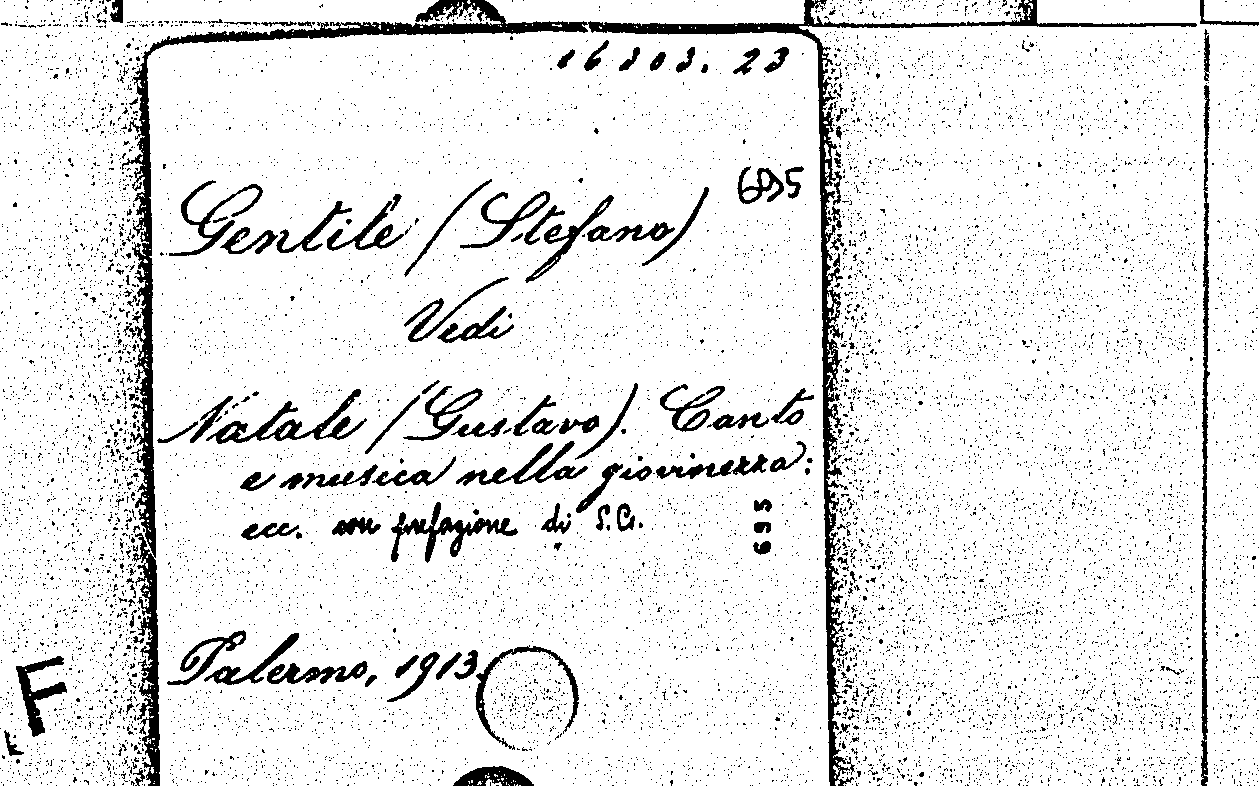 16303. 23
695
Gentile (Stefano)
Vedi
Natale (Gustavo). Canto
e musica nella giovinezza:
ecc. con prefazione di S.G.
695
Palermo, 1913.
F